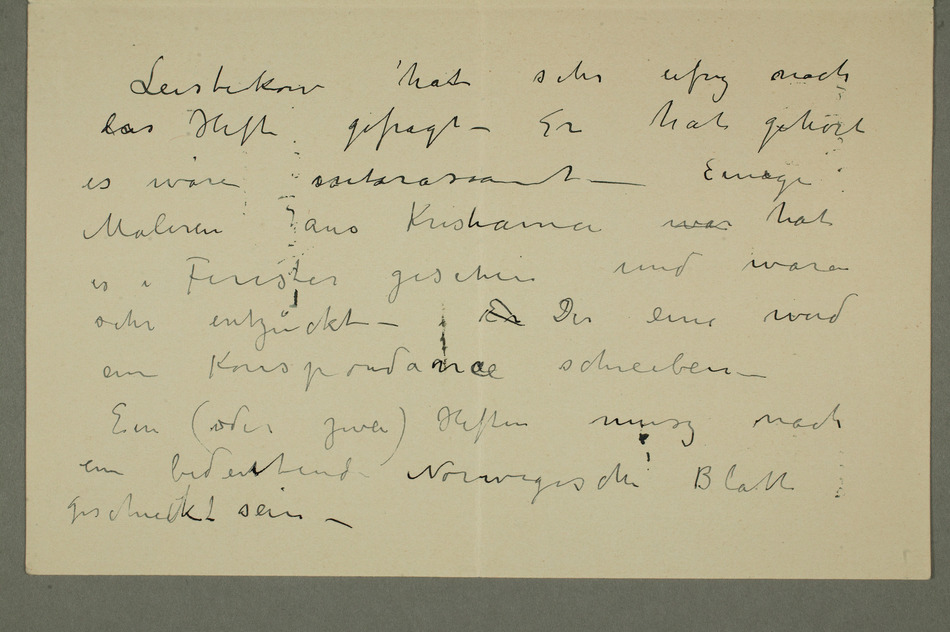 Leistikow hat sehr eifrig nach
das Heft gefragt – Er hat gehört
es wäre interessant – Einige
Maleren aus Kristiania war hat
es i Fenster gesehen und waren
sehr entzückt – Er Der eine wird
ein Korrespondance schreiben –
Ein (oder zwei) Heften musz nach
ein bedeutende Norwegische Blatt
geschickt sein –